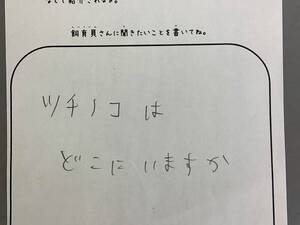 飼育員さんに聞きたいことを書いてね。
ツチノコは
どこにいますか